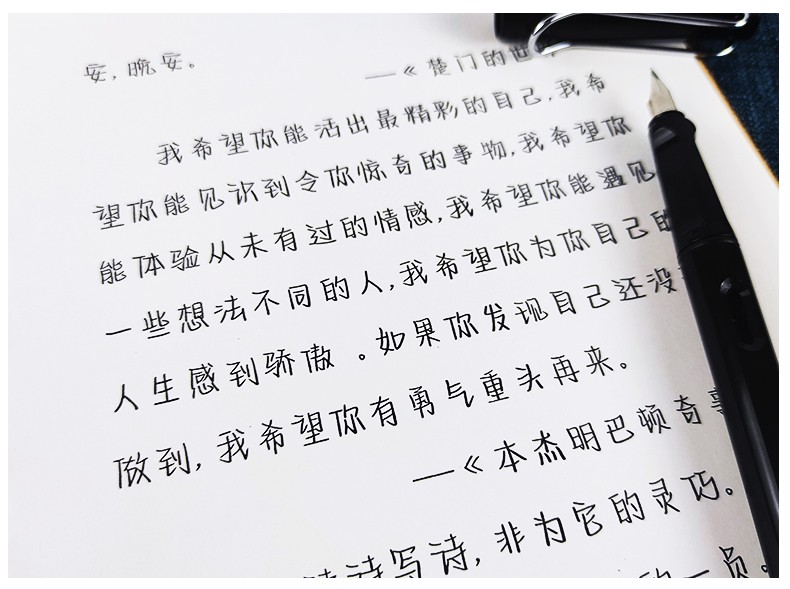 安，晚安。
—《楚门的世
我希望你能活出最精彩的自己，我希
望你能见识到令你惊奇的事物，我希望你
能体验从未有过的情感，我希望你能遇见
一些想法不同的人，我希望你为你自己的
人生感到骄傲。如果你发现自己还没
做到，我希望你有勇气重头再来。
—《本杰明巴顿奇事
诗写诗，非为它的灵巧。
的一员。